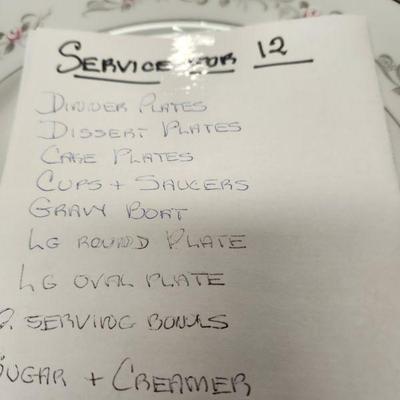 SERVICE FOR 12
DINNER PLATES
DISSERT PLATES
CAKE PLATES
CUPS + SAUCERS
GRAVY BOAT
LG ROUND PLATE
LG OVAL PLATE
SERVING BOWLS
SUGAR + CREAMER